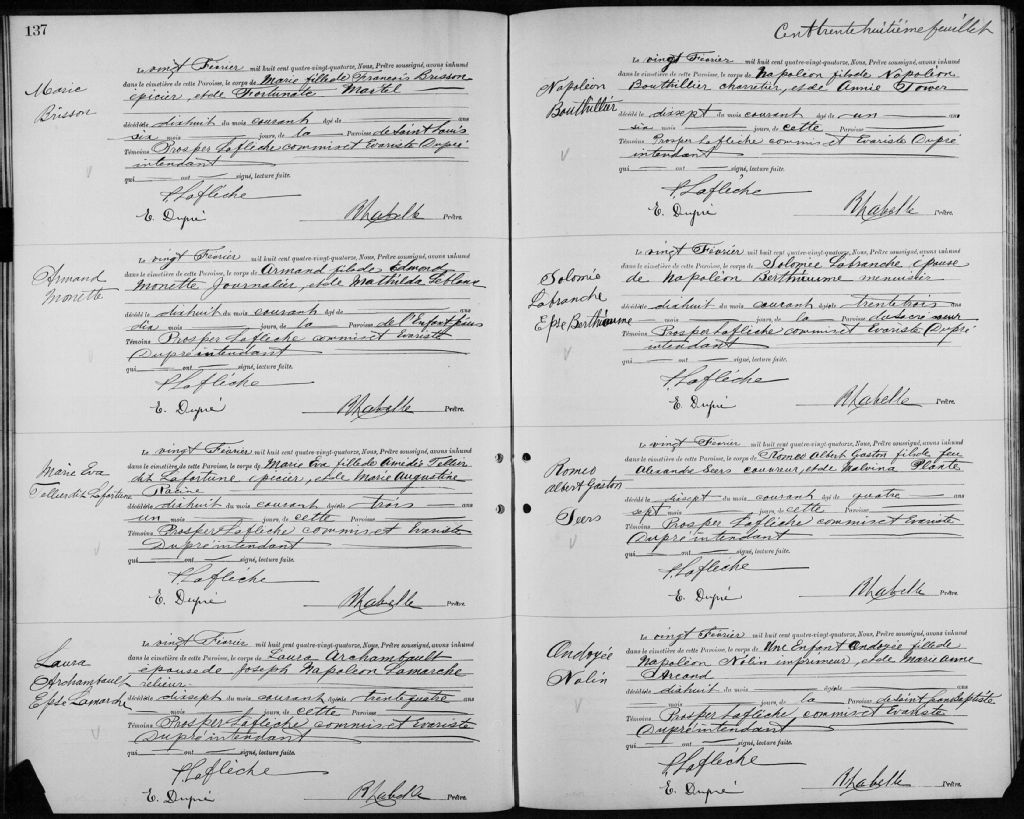 137
Marie
Brisson
Le vingt Février mil huit cent quatre-vingt-quatorze, Nous, Prêtre soussigné, avons inhumé
dans le cimetière de cette Paroisse, le corps de Marie fille de François Brisson
épicier, et de Fortunate Martel
décédé le dixhuit du mois courant âgé de ans
six mois jours, de la Paroisse de Saint Louis
Témoins Prosper Laflèche commis et Evariste Dupré
intendant
qui ont signé, lecture faite.
P. Laflèche
E. Dupré Prêtre.
Armand
Monette
Le vingt Février mil huit cent quatre-vingt-quatorze, Nous, Prêtre soussigné, avons inhumé
dans le cimetière de cette Paroisse, le corps de Armand fils de Edmond
Monette Journalier, et de Mathilda Leblanc
décédé le dixhuit du mois courant âgé de ans
dix mois jours, de la Paroisse de l'Enfant Jésus
Témoins Prosper Laflèche commis et Evariste
Dupré intendant
qui ont signé, lecture faite.
P. Laflèche
E. Dupré Prêtre.
Marie Eva
Tellier dit Lafortune
Le vingt Février mil huit cent quatre-vingt-quatorze, Nous, Prêtre soussigné, avons inhumé
dans le cimetière de cette Paroisse, le corps de Marie Eva fille de Amédée Tellier
dit Lafortune épicier, et de Marie Augustine
Racine
décédé le dixhuit du mois courant âgé de trois ans
un mois jours, de cette Paroisse
Témoins Prosper Laflèche commis et Evariste
Dupré intendant
qui ont signé, lecture faite.
P. Laflèche
E. Dupré Prêtre.
Laura
Archambault
Epse Lamarche
Le vingt Février mil huit cent quatre-vingt-quatorze, Nous, Prêtre soussigné, avons inhumé
dans le cimetière de cette Paroisse, le corps de Laura Archambault
épouse de Joseph Napoléon Lamarche
relieur
décédé le dixsept du mois courant âgé de trente quatre ans
mois jours, de cette Paroisse
Témoins Prosper Laflèche commis et Evariste
Dupré intendant
qui ont signé, lecture faite.
P. Laflèche
E. Dupré Prêtre.
Cent trente huitième feuillet
Napoléon
Bouthillier
Le vingt Février mil huit cent quatre-vingt-quatorze, Nous, Prêtre soussigné, avons inhumé
dans le cimetière de cette Paroisse, le corps de Napoléon fils de Napoléon
Bouthillier charretier, et de Annie Power
décédé le dixsept du mois courant âgé de un ans
six mois jours, de cette Paroisse
Témoins Prosper Laflèche commis et Evariste Dupré
intendant
qui ont signé, lecture faite.
P. Laflèche
E. Dupré Prêtre.
Solomée
Labranche
Epse Berthiaume
Le vingt Février mil huit cent quatre-vingt-quatorze, Nous, Prêtre soussigné, avons inhumé
dans le cimetière de cette Paroisse, le corps de Solomée Labranche épouse
de Napoléon Berthiaume menuisier
décédé le dixhuit du mois courant âgé de trente trois ans
mois jours, de la Paroisse du sacré cœur
Témoins Prosper Laflèche commis et Evariste Dupré
intendant
qui ont signé, lecture faite.
P. Laflèche
E. Dupré Prêtre.
Romeo
Albert Gaston
Seers
Le vingt Février mil huit cent quatre-vingt-quatorze, Nous, Prêtre soussigné, avons inhumé
dans le cimetière de cette Paroisse, le corps de Romeo Albert Gaston fils de feu
Alexandre Seers couvreur, et de Malvina Plante
décédé le dixsept du mois courant âgé de quatre ans
sept mois jours, de cette Paroisse
Témoins Prosper Laflèche commis et Evariste
Dupré intendant
qui ont signé, lecture faite.
P. Laflèche
E. Dupré Prêtre.
Ondoyée
Nolin
Le vingt Février mil huit cent quatre-vingt-quatorze, Nous, Prêtre soussigné, avons inhumé
dans le cimetière de cette Paroisse, le corps de Une Enfant Ondoyée fille de
Napoléon Nolin imprimeur, et de Marie Anne
Arcand
décédé le dixhuit du mois âgé de ans
mois jours, de la Paroisse de Saint Jean Baptiste
Témoins Prosper Laflèche commis et Evariste
Dupré intendant
qui ont signé, lecture faite.
P. Laflèche
E. Dupré Prêtre.